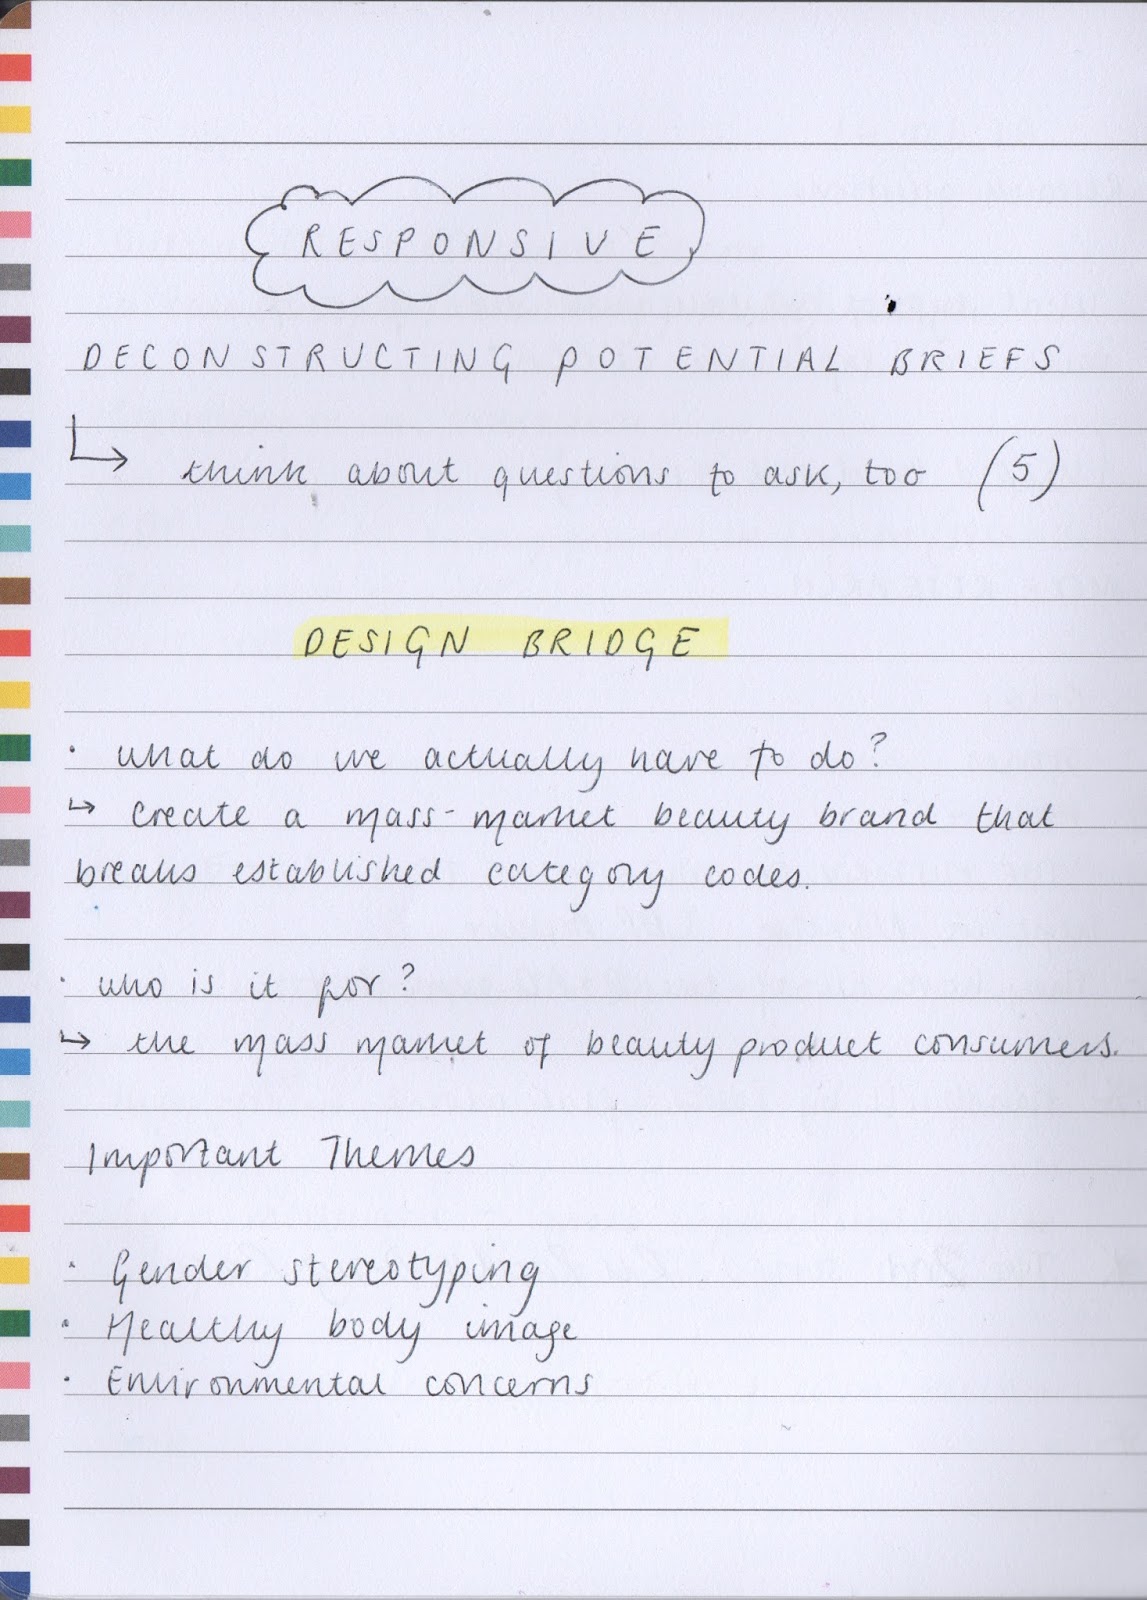 RESPONSIVE
DECONSTRUCTING POTENTIAL BRIEFS
↳ think about questions to ask, too (5)
DESIGN BRIDGE
· what do we actually have to do?
↳ create a mass-market beauty brand that
breaks established category codes.
· who is it for?
↳ the mass market of beauty product consumers.
Important Themes
· Gender stereotyping
· Healthy body image
· Environmental concerns